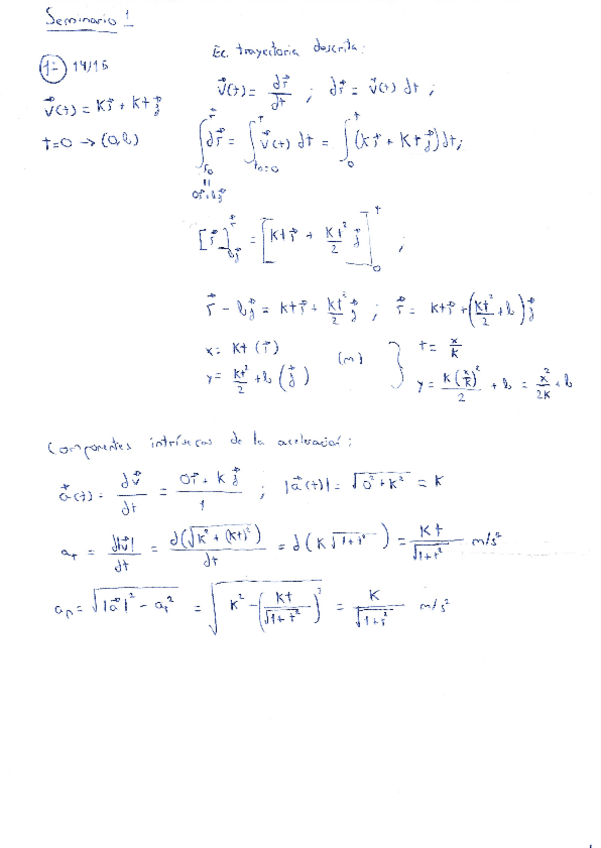 Seminario 1
1=) 14/15
v⃗(t) = K i⃗ + K t j⃗
t=0 → (0,b)
Ec. trayectoria descrita:
v⃗(t) = dr⃗/dt ; dr⃗ = v⃗(t) dt ;
∫_{r₀}^{r⃗} dr⃗ = ∫_{t₀=0}^{t} v⃗(t) dt = ∫_0^t (K i⃗ + K t j⃗) dt ;
0i⃗+bj⃗
[r⃗]_{bj⃗}^{r⃗} = [Kt i⃗ + Kt²/2 j⃗]_0^t ;
r⃗ - b j⃗ = Kt i⃗ + Kt²/2 j⃗ ; r⃗ = Kt i⃗ + (Kt²/2 + b) j⃗
x = Kt (i⃗)
y = Kt²/2 + b (j⃗)
(m)
t = x/K
y = K(x/K)²/2 + b = x²/2K + b
Componentes intrísecas de la aceleración:
a⃗(t) = dv⃗/dt = 0i⃗ + K j⃗/1 ; |a⃗(t)| = √0² + K² = K
a_t = d|v⃗|/dt = d(√K² + (Kt)²)/dt = d(K√1+t²) = Kt/√1+t² m/s²
a_n = √|a⃗|² - a_t² = √K² - (Kt/√1+t²)² = K/√1+t² m/s²